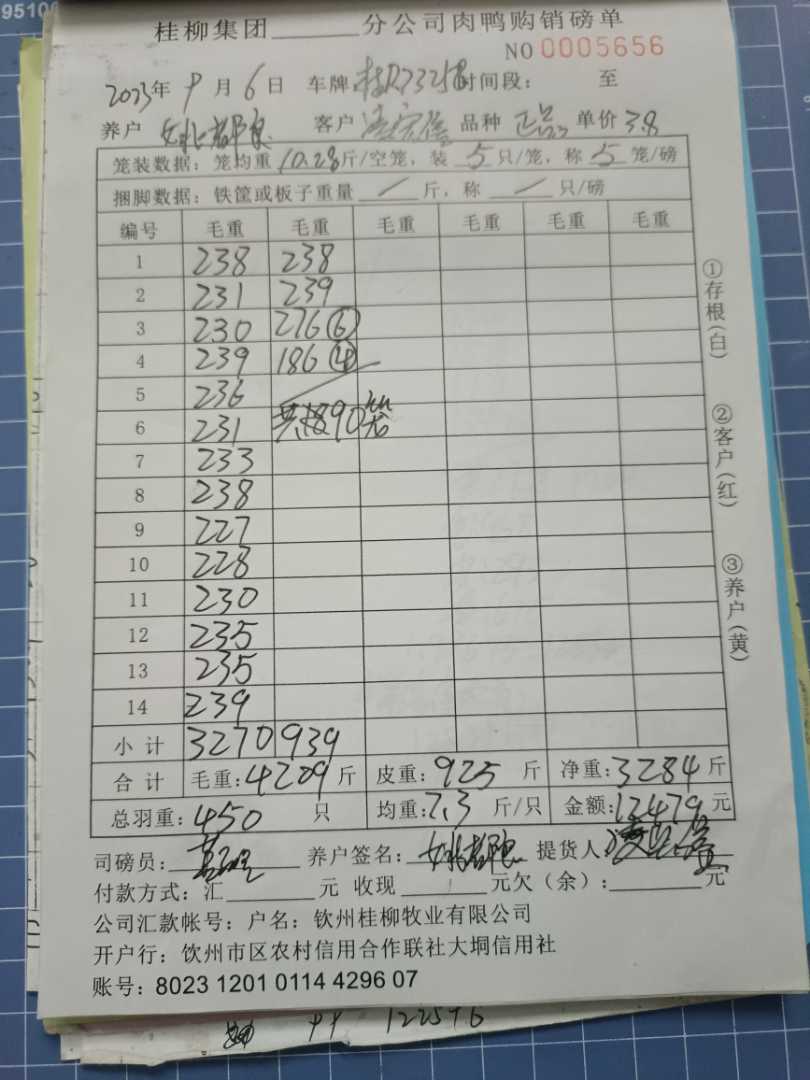 95106
桂柳集团______分公司肉鸭购销磅单
NO 0005656
2023年 9月 6日 车牌: 时间段: 至
养户 客户 品种 正品 单价 3.8
笼装数据: 笼均重 10.28斤/空笼, 装 5 只/笼, 称 5 笼/磅
捆脚数据: 铁筐或板子重量 / 斤, 称 / 只/磅
编号 毛重 毛重 毛重 毛重 毛重 毛重
1 238 238
2 231 239
3 230 276⑥
4 239 186④
5 236
6 231 共 90笼
7 233
8 238
9 227
10 228
11 230
12 235
13 235
14 239
小计 3270 939
合计 毛重:4209斤 皮重:925斤 净重:3284斤
总羽重:450只 均重:7.3斤/只 金额:12479元
司磅员: 养户签名: 提货人:
付款方式:汇______元 收现______元欠(余):______元
公司汇款帐号: 户名: 钦州桂柳牧业有限公司
开户行: 钦州市区农村信用合作联社大垌信用社
账号: 8023 1201 0114 4296 07
①存根(白)
②客户(红)
③养户(黄)